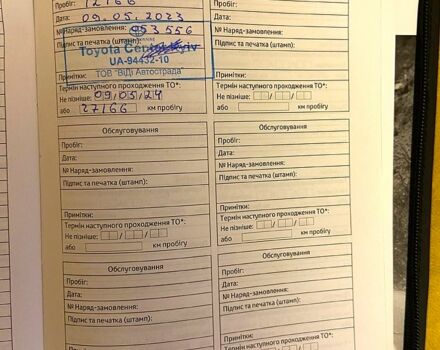 Пробіг: 12166
Дата: 09.05.2023
№ Наряд-замовлення: 953556
Підпис та печатка (штамп):
Toyota Center Kyiv
UA-94432-10
ТОВ "ВіДі Автострада"
Примітки:
Термін наступного проходження ТО*:
Не пізніше: 09/05/24
або 27166 км пробігу
Пробіг:
Дата:
№ Наряд-замовлення:
Підпис та печатка (штамп):
Примітки:
Термін наступного проходження ТО*:
Не пізніше: / /
або км пробігу
Обслуговування
Пробіг:
Дата:
№ Наряд-замовлення:
Підпис та печатка (штамп):
Примітки:
Термін наступного проходження ТО*:
Не пізніше: / /
або км пробігу
Обслуговування
Пробіг:
Дата:
№ Наряд-замовлення:
Підпис та печатка (штамп):
Примітки:
Термін наступного проходження ТО*:
Не пізніше: / /
або км пробігу
Обслуговування
Пробіг:
Дата:
№ Наряд-замовлення:
Підпис та печатка (штамп):
Обслуговування
Пробіг:
Дата:
№ Наряд-замовлення:
Підпис та печатка (штамп):
Примітки: